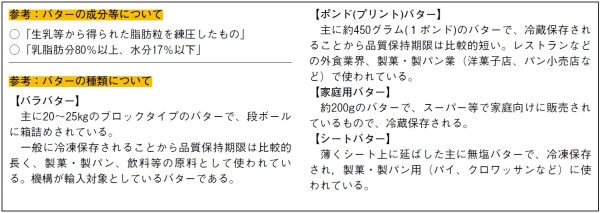 参考：バターの成分等について
○「生乳等から得られた脂肪粒を練圧したもの」
○「乳脂肪分80％以上、水分17％以下」
参考：バターの種類について
【バラバター】
主に20～25kgのブロックタイプのバターで、段ボール
に箱詰めされている。
一般に冷凍保存されることから品質保持期限は比較的
長く、製菓・製パン、飲料等の原料として使われてい
る。機構が輸入対象としているバターである。
【ポンド(プリント)バター】
主に約450グラム(１ポンド)のバターで、冷蔵保存さ
れることから品質保持期限は比較的短い。レストランなど
の外食業界、製菓・製パン業（洋菓子店、パン小売店な
ど）で使われている。
【家庭用バター】
約200gのバターで、スーパー等で家庭向けに販売され
ているもので、冷蔵保存される。
【シートバター】
薄くシート上に延ばした主に無塩バターで、冷凍保存さ
れ，製菓・製パン用（パイ、クロワッサンなど）に使
われている。